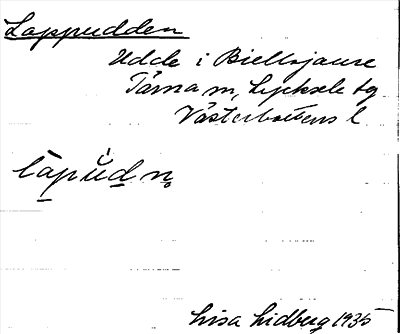 Lappudden
Udde i Biellojaure
Tärna sn, Lycksele tg
Västerbottens l
lapud n
Lisa Lidberg 1935